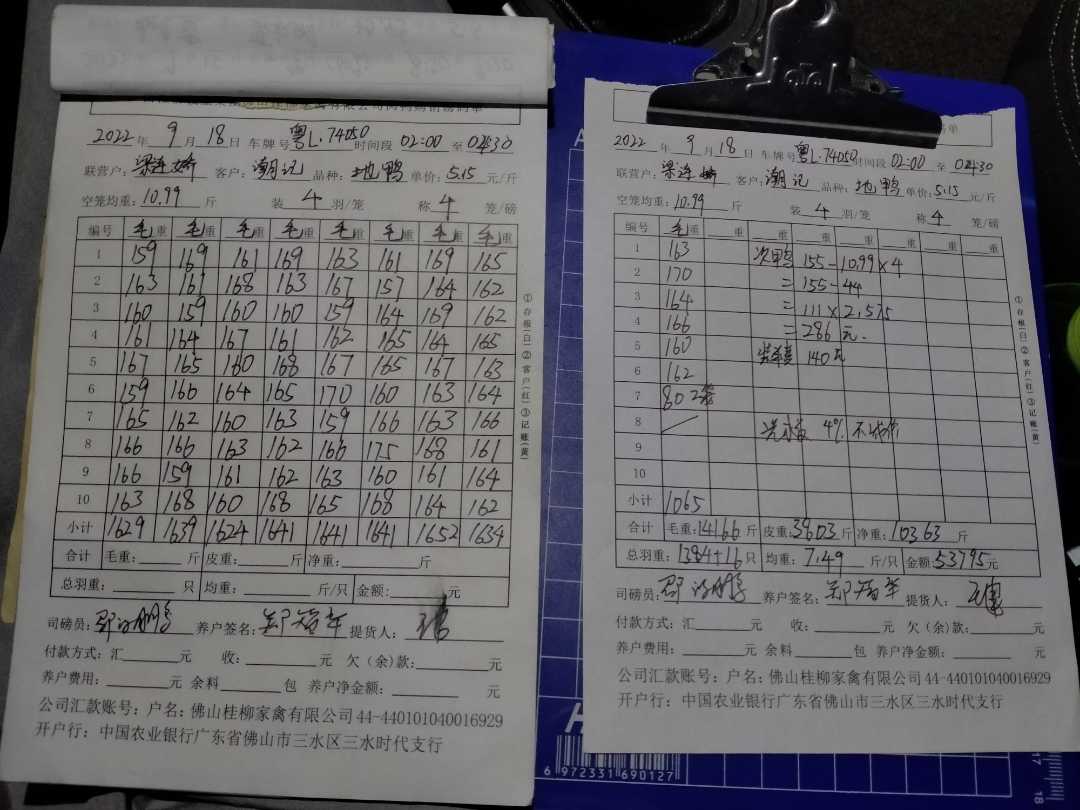 2022年 9月 18日 车牌号 粤L.74050 时间段 02:00 至 04:30
联营户: 梁连娇 客户: 潮记 品种: 地鸭 单价: 5.15 元/斤
空笼均重: 10.99 斤 装 4 羽/笼 称 4 笼/磅
编号 毛重 毛重 毛重 毛重 毛重 毛重 毛重 毛重
1 159 169 161 169 163 161 169 165
2 163 161 168 163 167 157 164 162
3 160 159 160 160 159 164 169 162
4 161 164 167 161 162 165 164 165
5 167 165 160 168 167 165 167 163
6 159 166 164 165 170 160 163 164
7 165 162 160 163 159 166 163 166
8 166 166 163 162 166 175 168 161
9 166 159 161 162 163 160 161 164
10 163 168 160 168 165 168 164 162
小计 1629 1639 1624 1641 1641 1641 1652 1634
合计 毛重: 斤 皮重: 斤 净重: 斤
总羽重: 只 均重: 斤/只 金额: 元
司磅员: 养户签名: 郑福年 提货人:
付款方式: 汇 元 收: 元 欠(余)款: 元
养户费用: 元 余料 包 养户净金额: 元
公司汇款账号: 户名: 佛山桂柳家禽有限公司 44-440101040016929
开户行: 中国农业银行广东省佛山市三水区三水时代支行
①存根(白)②客户(红)③记账(黄)
2022年 9月 18日 车牌号 粤L.74050 时间段 02:00 至 04:30
联营户: 梁连娇 客户: 潮记 品种: 地鸭 单价: 5.15 元/斤
空笼均重: 10.99 斤 装 4 羽/笼 称 4 笼/磅
编号 毛重 重 重 重 重 重 重 重
1 163 次鸭 155-10.99×4
2 170 =155-44
3 164 =111×2.575
4 166 =286元.
5 160 140元
6 162
7 80 2笼
8 4%
9
10
小计 1065
合计 毛重: 14166 斤 皮重: 3803 斤 净重: 10363 斤
总羽重: 1384+16 只 均重: 7.49 斤/只 金额: 53795 元
司磅员: 养户签名: 郑福年 提货人:
付款方式: 汇 元 收: 元 欠(余)款: 元
养户费用: 元 余料 包 养户净金额: 元
公司汇款账号: 户名: 佛山桂柳家禽有限公司 44-440101040016929
开户行: 中国农业银行广东省佛山市三水区三水时代支行
①存根(白)②客户(红)③记账(黄)
6 972331 690127
17
18